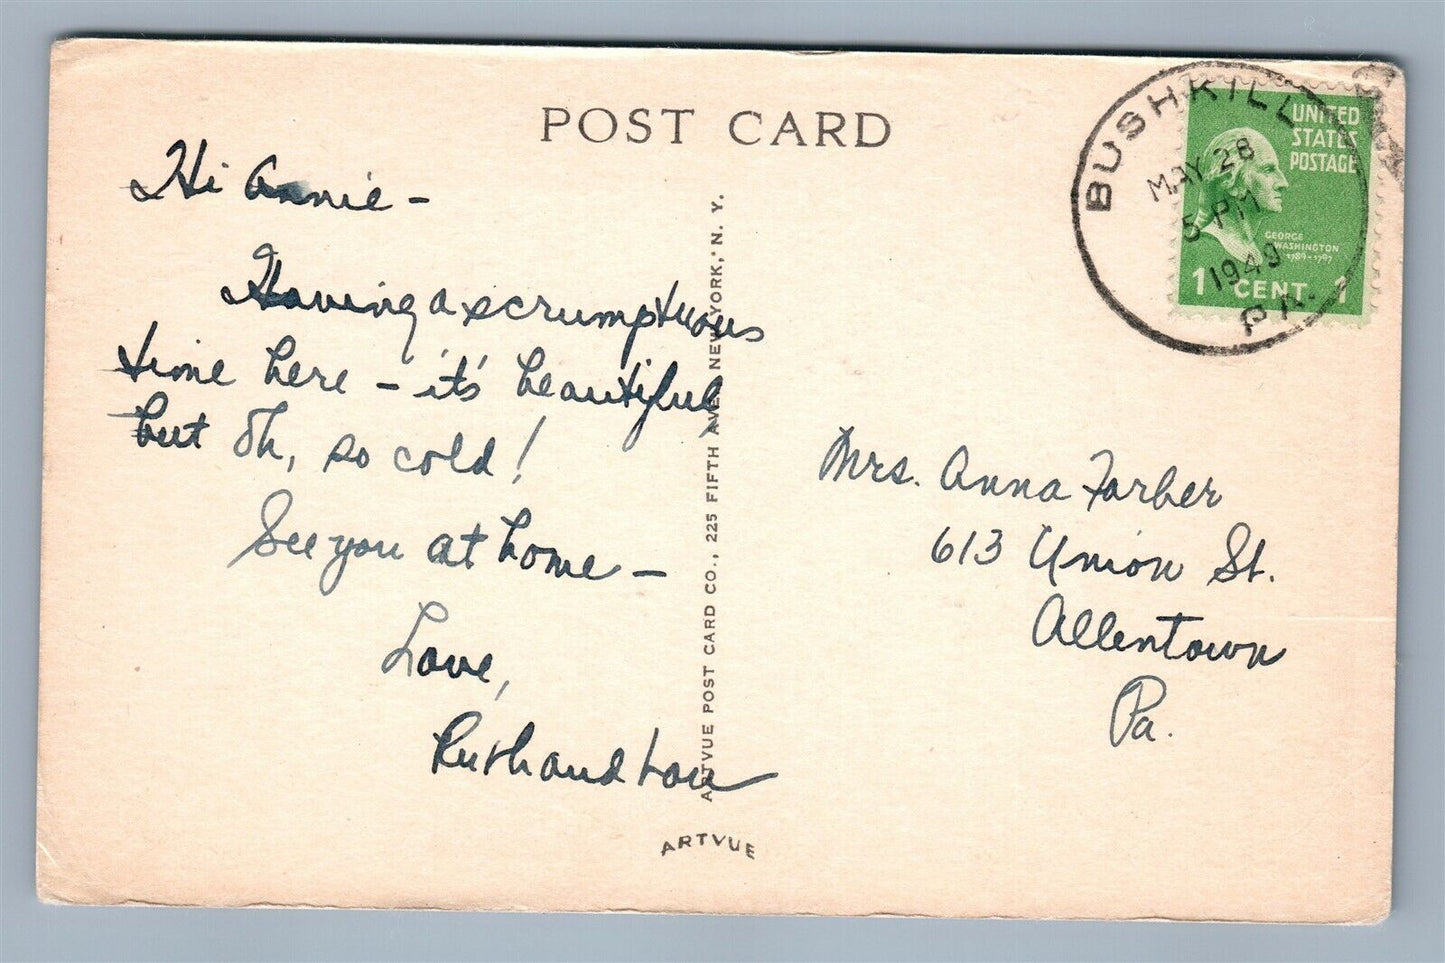 POST CARD
Hi Annie -
Having a scrumptuous
time here - it's beautiful,
but oh, so cold!
See you at home -
Love,
Ruth and Lou
ARTVUE POST CARD CO., 225 FIFTH AVE., NEW YORK, N. Y.
ARTVUE
BUSHKILL
MAY 28
5 PM
1949
PA.
UNITED
STATES
POSTAGE
GEORGE
WASHINGTON
1789-1797
1 CENT 1
Mrs. Anna Farber
613 Union St.
Allentown
Pa.